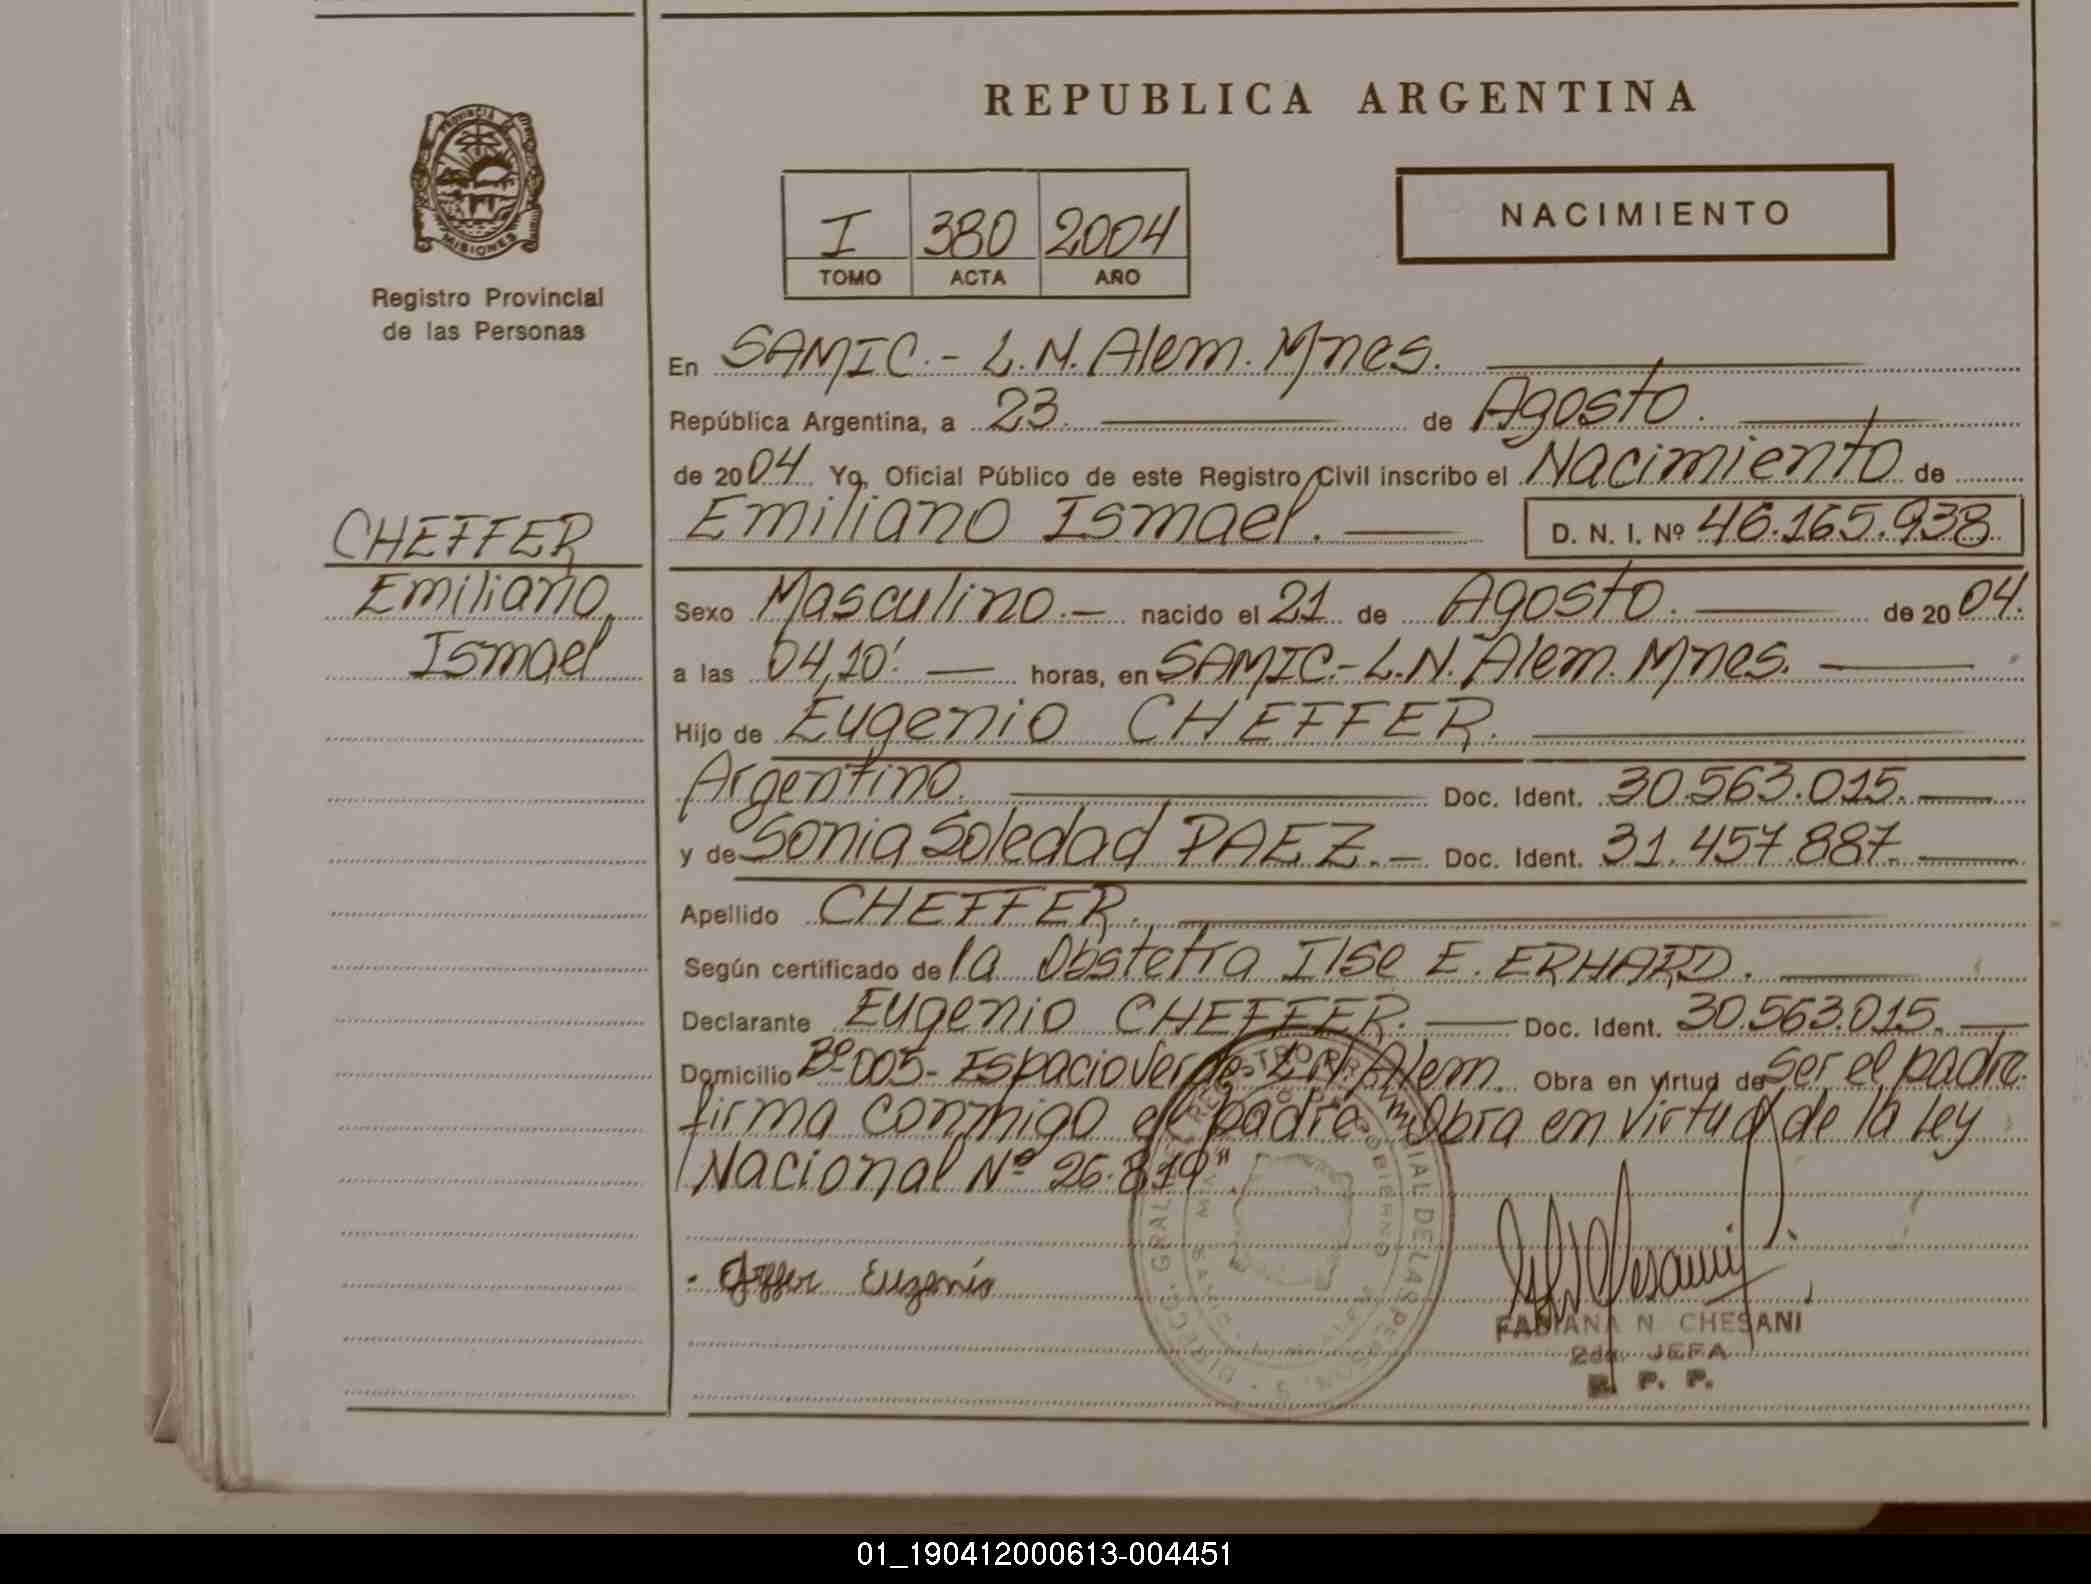 REPUBLICA ARGENTINA
PROVINCIA DE
MISIONES
Registro Provincial
de las Personas
I 380 2004
TOMO ACTA AÑO
NACIMIENTO
En SAMIC.- L.N. Alem. Mnes.
República Argentina, a 23 de Agosto.
de 2004. Yo, Oficial Público de este Registro Civil inscribo el Nacimiento de
Emiliano Ismael. D. N. I. Nº 46.165.938
CHEFFER
Emiliano
Ismael
Sexo Masculino.- nacido el 21 de Agosto. de 2004.
a las 04,10' horas, en SAMIC.- L.N. Alem. Mnes.
Hijo de Eugenio CHEFFER.
Argentino. Doc. Ident. 30.563.015.
y de Sonia Soledad PAEZ.- Doc. Ident. 31.457.887
Apellido CHEFFER.
Según certificado de la Obstetra Ilse E. ERHARD.
Declarante Eugenio CHEFFER. Doc. Ident. 30.563.015.
Domicilio Bº 005- Espacio Verde L.N. Alem. Obra en virtud de ser el padre
firma conmigo el padre "Obra en virtud de la Ley
Nacional Nº 26.819"
Eugenio
FABIANA N. CHESANI
2da. JEFA
R. P. P.
01_190412000613-004451